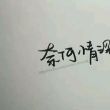 奈何情深